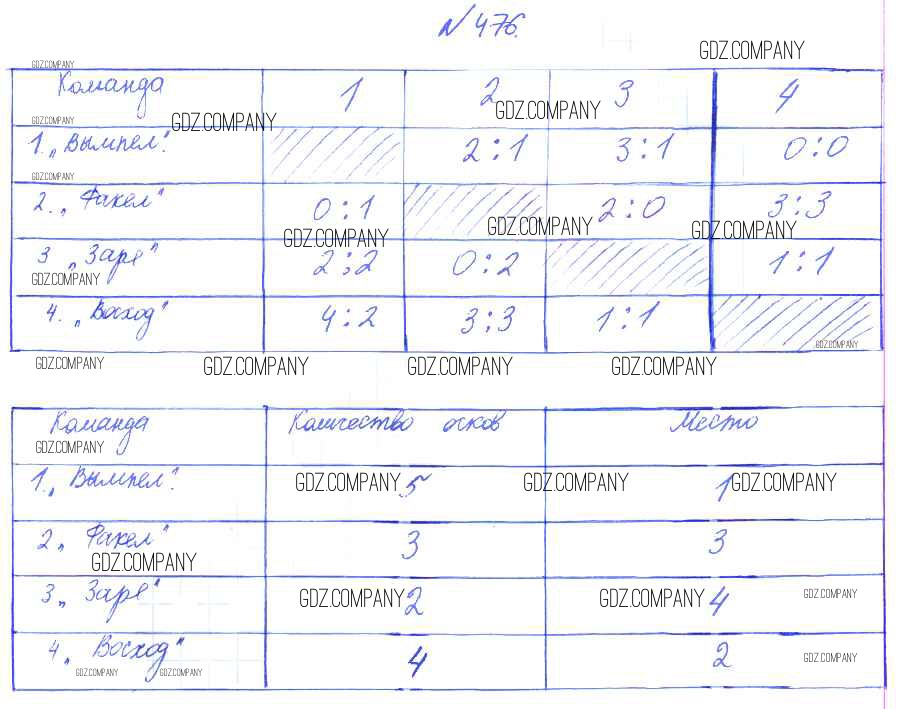 № 476.
GDZ.COMPANY
GDZ.COMPANY
Команда 1 2 3 4
GDZ.COMPANY GDZ.COMPANY GDZ.COMPANY
1. „Вымпел". 2:1 3:1 0:0
GDZ.COMPANY
2. „Факел" 0:1 2:0 3:3
GDZ.COMPANY GDZ.COMPANY GDZ.COMPANY
3 „Заре" 2:2 0:2 1:1
GDZ.COMPANY
4. „Восход" 4:2 3:3 1:1
GDZ.COMPANY
GDZ.COMPANY GDZ.COMPANY GDZ.COMPANY GDZ.COMPANY
Команда Количество очков Место
GDZ.COMPANY
1. „Вымпел". 5 1
GDZ.COMPANY GDZ.COMPANY GDZ.COMPANY
2 „ Факел" 3 3
GDZ.COMPANY
3 „ Заре" 2 4
GDZ.COMPANY GDZ.COMPANY GDZ.COMPANY
4 „ Восход" 4 2
GDZ.COMPANY GDZ.COMPANY GDZ.COMPANY